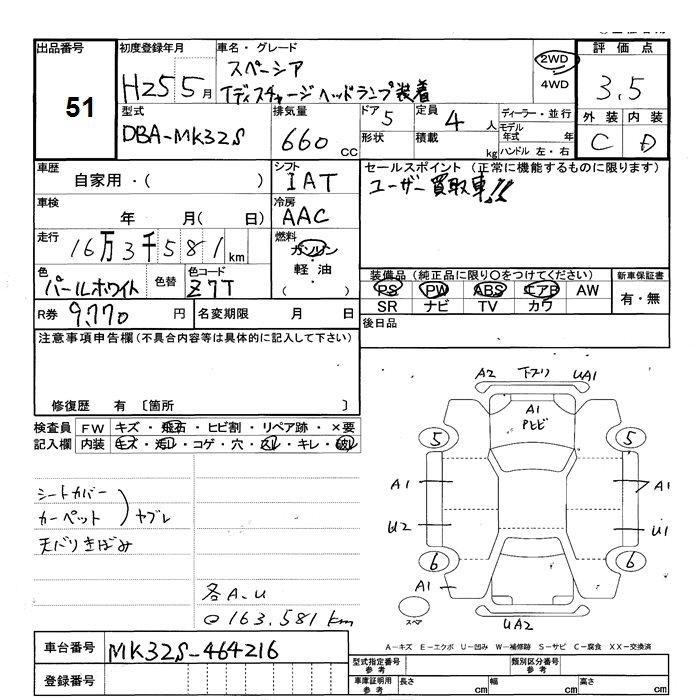 出品番号
51
初度登録年月
H25 5月
車名・グレード
スペーシア
Tディスチャージヘッドランプ装着
2WD
4WD
評価点
3.5
外装 内装
C D
型式
DBA-MK32S
排気量
660 CC
ドア 5
形状
定員 4 人
積載 kg
ディーラー・並行
モデル年式 年
ハンドル 左・右
車歴
自家用・( )
シフト
IAT
セールスポイント (正常に機能するものに限ります)
ユーザー買取車!!
車検
年 月( 日)
冷房
AAC
走行
16万3千581km
燃料
ガソリン
軽油
( )
色
パールホワイト
色替
色コード
Z7T
装備品 (純正品に限り○をつけてください)
PS PW ABS エアB AW
SR ナビ TV カワ
新車保証書
有・無
R券 9,770 円
名変期限 月 日
後日品
注意事項申告欄(不具合内容等は具体的に記入して下さい)
修復歴 有 〔箇所 〕
検査員記入欄
FW キズ・飛石・ヒビ割・リペア跡・×要
内装 キズ・汚レ・コゲ・穴・スレ・キレ・破レ
シートカバー
カーペット
ヤブレ
天バリきばみ
各A.U
@163.581km
A2 下スリ UA1
A1
Pヒビ
5 5
A1 A1
U2 U1
6 6
A1
スペア
UA2
A-キズ E-エクボ U-凹み W-補修跡 S-サビ C-腐食 XX-交換済
車台番号 MK32S-464216
登録番号
型式指定番号 参考
類別区分番号 参考
車庫証明用 参考
長さ cm 幅 cm 高さ cm